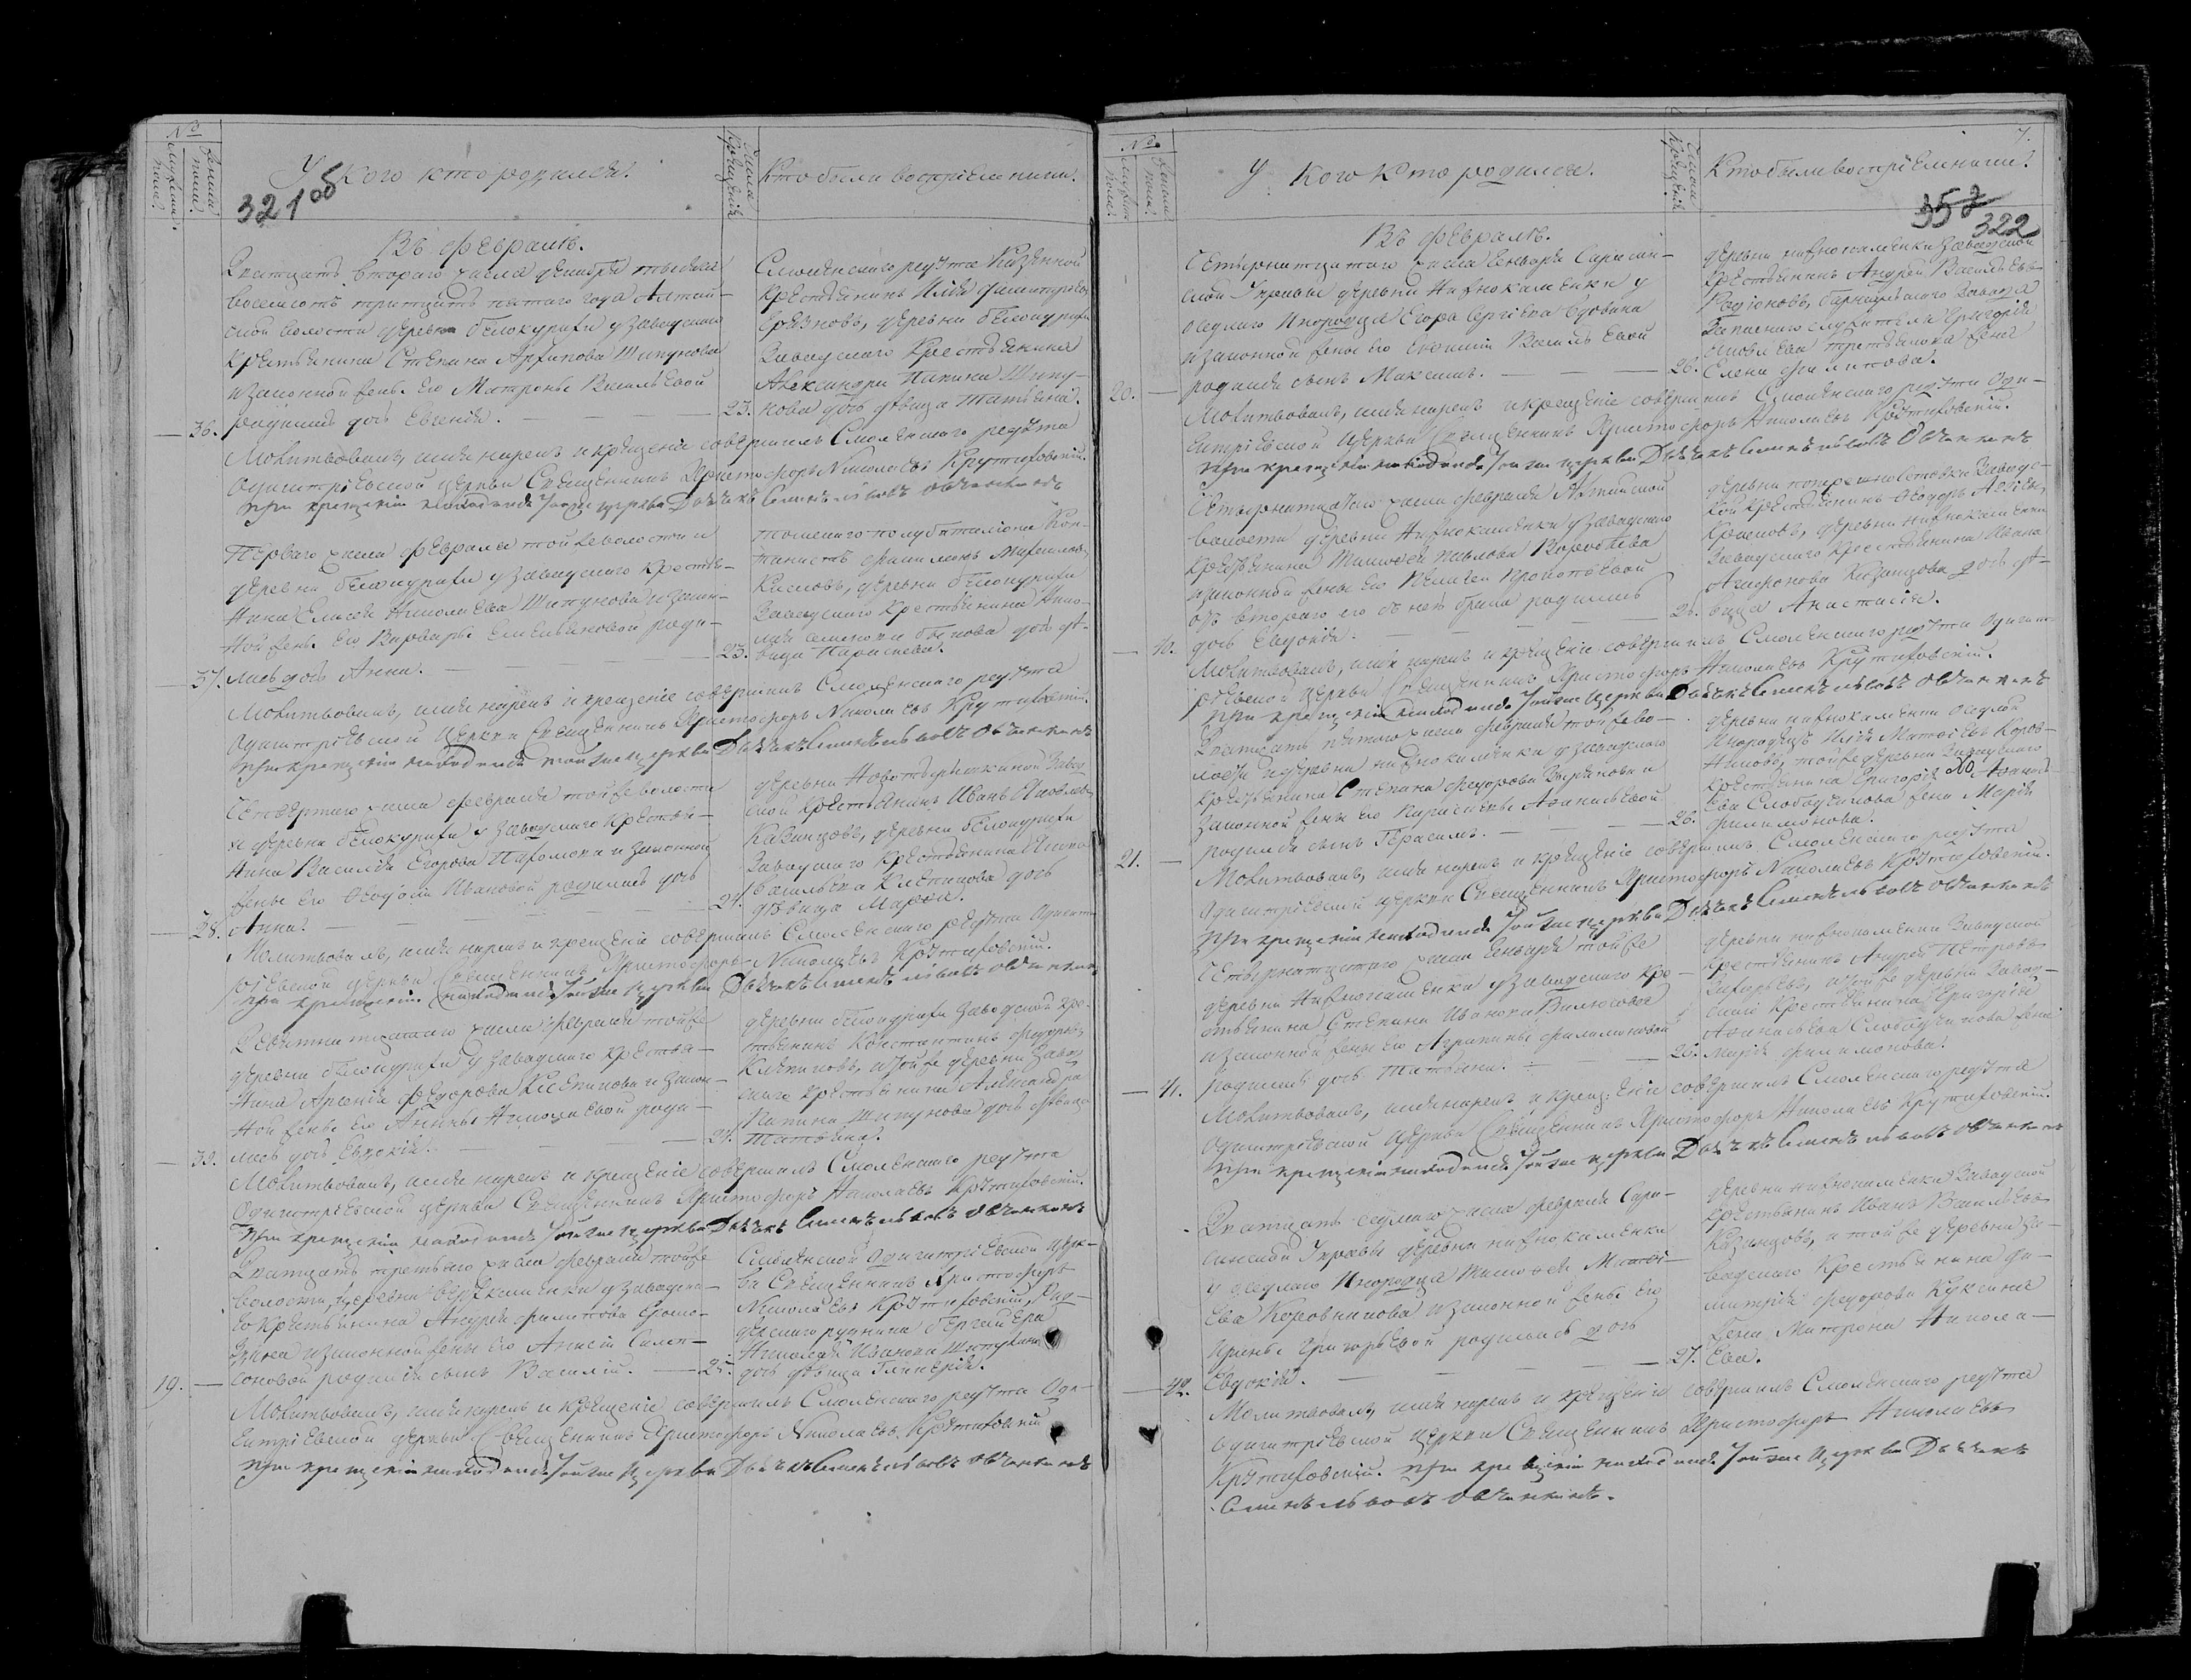 №
Мужеска пола.
Женска пола.
У кого кто родился.
Числа крещенія
Кто были воспріемники.
321 об
Въ февралѣ.
Двацать втораго числа декабря тысяча
восемьсотъ тритцать пятаго года Алтай-
ской волости деревни белокурихи у заводскаго
крестьянина Степана Архипова Шипунова
и законной жены его Матроны Васильевой
36. родилась дочь Евгенія. 23.
Смоленскаго редута казенной
крестьянинъ Илія
деревни белокурихи
Заводскаго Крестьянина
Александра Папина Шипу-
нова дочь дѣвица Татьяна.
Молитвовалъ, имя нарекъ и крещеніе совершилъ Смоленскаго редута
Одигитріевской церкви Священникъ Христофоръ Николаевъ Крутиховскій.
При крещеніи находился тои же церкви Дьячекъ
Перваго числа февраля той же волости и
деревни белокурихи у заводскаго крестья-
нина Елисея Николаева Шипунова и закон-
ной жены его Варвары Емельяновой роди-
37. лась дочь Анна. 23.
Томскаго полубаталіона Кан-
тонистъ Филимонъ Михайловъ
Кисловъ, деревни белокурихи
Заводскаго Крестьянина Нико-
лая Семенова Быкова дочь дѣ-
вица Параскева.
Молитвовалъ, имя нарекъ и крещеніе совершилъ Смоленскаго редута
Одигитріевской церкви Священникъ Христофоръ Николаевъ Крутиховскій.
При крещеніи находился тои же церкви Дьячекъ
Четвертаго числа февраля той же волости
и деревни белокурихи у заводскаго крестья-
нина Василія Егорова Пахомова и законной
жены его Феодосіи Ивановой родилась дочь
38. Анна. 24.
деревни Новотырышкиной Завод
ской крестьянинъ Иванъ Яковлевъ
Казанцовъ, деревни белокурихи
Заводскаго Крестьянина
Васильева Клепикова дочь
дѣвица Марѳа.
Молитвовалъ, имя нарекъ и крещеніе совершилъ Смоленскаго редута Одигит-
ріевской церкви Священникъ Христофоръ Николаевъ Крутиховскій.
При крещеніи находился тои же церкви Дьячекъ
Девятнатцатаго числа февраля той же
деревни белокурихи у заводскаго крестья-
нина Арсенія Федорова Клепикова и закон-
ной жены его Анны Николаевой роди-
39. лась дочь Евдокія. 24.
деревни белокурихи Заводской кре-
стьянинъ Константинъ Федоровъ
Клепиковъ, и той же деревни Завод
скаго крестьянина Александра
Папина Шипунова дочь дѣвица
Татьяна.
Молитвовалъ, имя нарекъ и крещеніе совершилъ Смоленскаго редута
Одигитріевской церкви Священникъ Христофоръ Николаевъ Крутиховскій.
При крещеніи находился тои же церкви Дьячекъ
Двацать третьяго числа февраля той же
волости, деревни Верхкаменки у заводска-
го крестьянина Андрея Филипова
и законной жены его Анисіи
19. родился сынъ Василій. 25.
Смоленской Одигитріевской церк-
ви Священникъ Христофоръ
Николаевъ Крутиховскій, Рид-
дерскаго рудника бергайера
Николая Иванова Шипулина
дочь дѣвица Гликерія.
Молитвовалъ, имя нарекъ и крещеніе совершилъ Смоленскаго редута Оди-
гитріевской церкви Священникъ Христофоръ Николаевъ Крутиховскій
При крещеніи находился тои же церкви Дьячекъ
№
Мужеска пола.
Женска пола.
У кого кто родился.
Числа крещенія
Кто были воспріемники.
7.
357
322
Въ февралѣ.
Четырнатцатаго числа Генваря Сарасин-
ской Управы деревни Нижнокаменки у
оседлаго инородца Егора Сергѣева
и законной жены его Васильевой
20. родился сынъ Максимъ. 26.
деревни нижнокаменки Заводской
крестьянинъ Андрей Васильевъ
Родіоновъ, барнаульскаго Завода
служителя Григорія
жена
Елена Филипова.
Молитвовалъ, имя нарекъ и крещеніе совершилъ Смоленскаго редута Оди-
гитріевской церкви Священникъ Христофоръ Николаевъ Крутиховскій.
При крещеніи находился тои же церкви Дьячекъ
Четырнатцатаго числа февраля Алтайской
волости деревни Нижнокаменки у заводскаго
крестьянина Тимофея Павлова Воробьева
и законной жены его Пелагеи Прокопьевой
отъ втораго его съ нею брака родилась
40. дочь Евдокія. 26.
деревни Заводс-
кой крестьянинъ Федоръ
деревни нижнокаменки
Заводскаго крестьянина Ивана
Агафонова Казанцова дочь дѣ-
вица Анастасія.
Молитвовалъ, имя нарекъ и крещеніе совершилъ Смоленскаго редута Одигит-
ріевской церкви Священникъ Христофоръ Николаевъ Крутиховскій.
При крещеніи находился тои же церкви Дьячекъ
Двацать пятаго числа февраля той же во-
лости и деревни нижнокаменки у заводскаго
крестьянина Степана Федорова Зырянова и
законной жены его Параскевы Афанасьевой
21. родился сынъ Герасимъ. 26.
деревни нижнокаменки оседлой
инородецъ Илія Матвѣевъ Коров-
никовъ, той же деревни Заводскаго
крестьянина Григорія Афанась-
ева Слободчикова жена Марія
Филимонова.
Молитвовалъ, имя нарекъ и крещеніе совершилъ Смоленскаго редута
Одигитріевской церкви Священникъ Христофоръ Николаевъ Крутиховскій.
При крещеніи находился тои же церкви Дьячекъ
Четырнатцатаго числа Генваря той же
деревни Нижнокаменки у заводскаго кре-
стьянина Степана Иванова
и законной жены его Агрипины Филимоновой
41. родилась дочь Татьяна. 26.
деревни нижнокаменки Заводской
крестьянинъ Андрей Петровъ
и той же деревни Завод-
скаго крестьянина Григорія
Афанасьева Слободчикова жена
Марія Филимонова.
Молитвовалъ, имя нарекъ и крещеніе совершилъ Смоленскаго редута
Одигитріевской церкви Священникъ Христофоръ Николаевъ Крутиховскій.
При крещеніи находился тои же церкви Дьячекъ
Двацать седмаго числа февраля Сара-
синской Управы деревни нижнокаменки
у оседлаго инородца Тимофея Матвѣ-
ева Коровникова и законной жены его
Ирины Григорьевой родилась дочь
42. Евдокія. 27.
деревни нижнокаменки Заводской
крестьянинъ Иванъ Васильевъ
Казанцовъ, и той же деревни За-
водскаго крестьянина Ди-
митрія Федорова Куксина
жена Матрона Никола-
ева.
Молитвовалъ, имя нарекъ и крещеніе совершилъ Смоленскаго редута
Одигитріевской церкви Священникъ Христофоръ Николаевъ
Крутиховскій. При крещеніи находился тои же церкви Дьячекъ